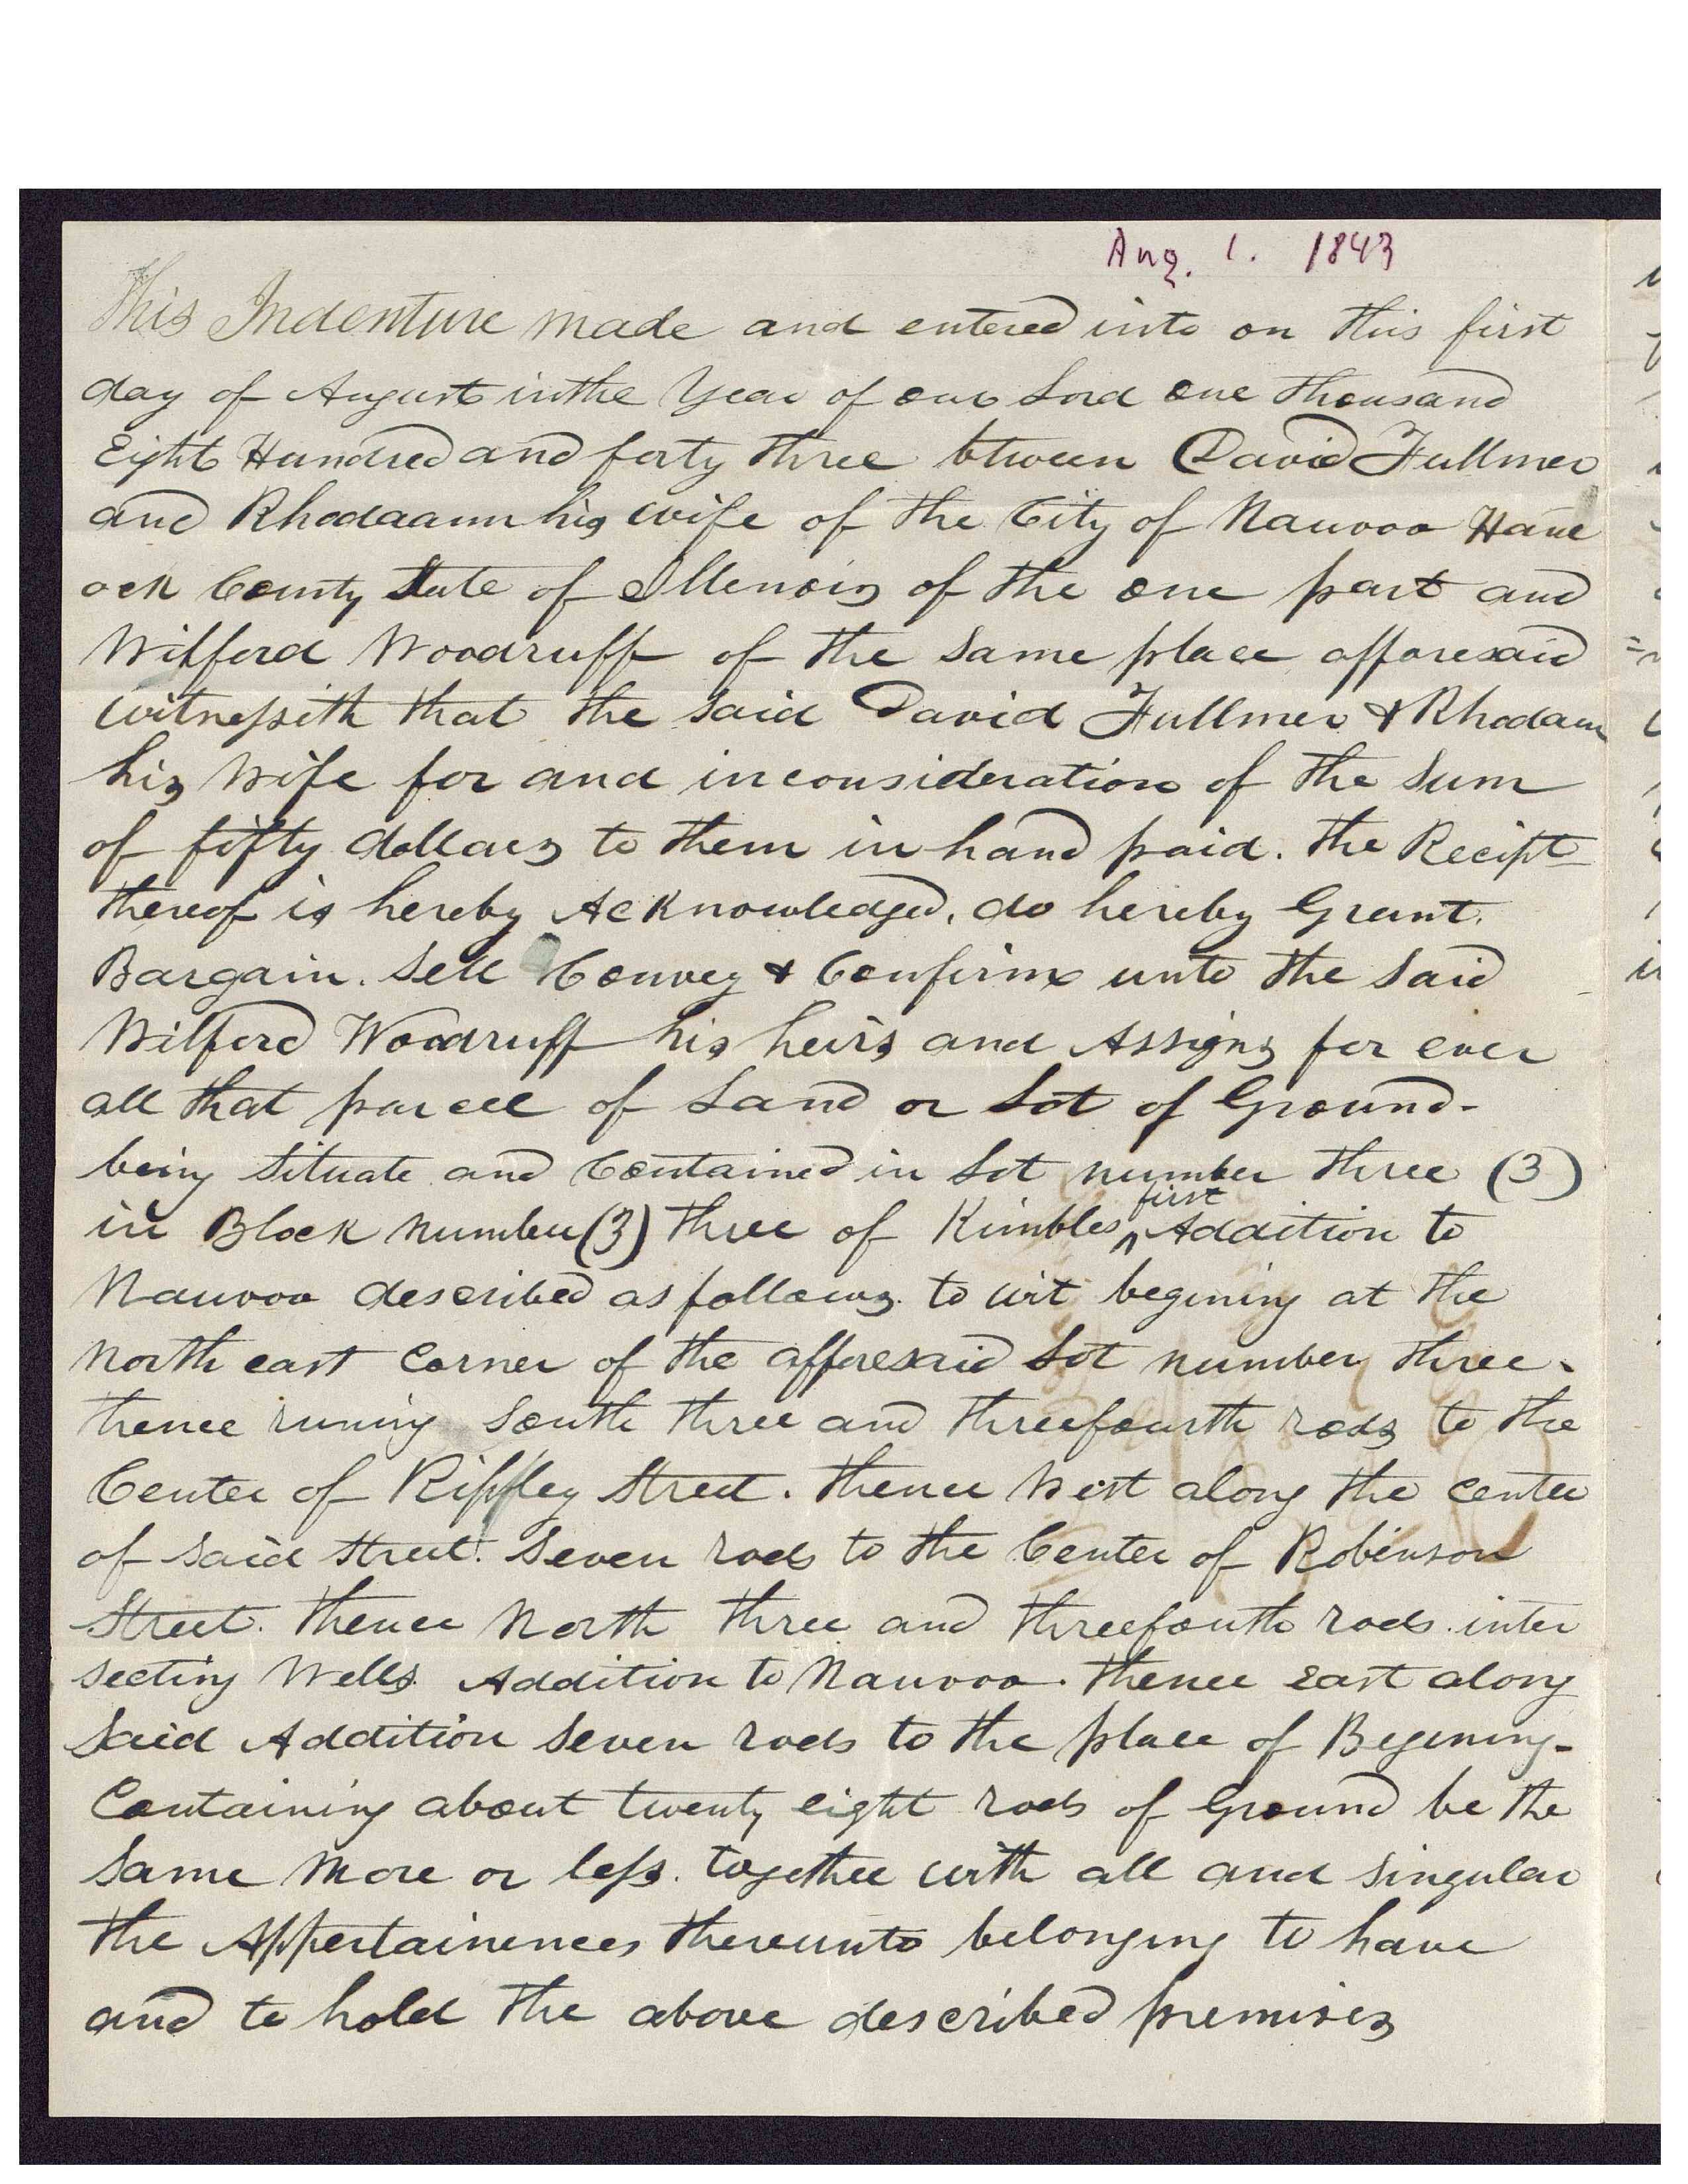 Aug. 1. 1843
This Indenture made and entered into on this first
day of August in the Year of our Lord one thousand
Eight Hundred and forty three btween David Fullmer
and Rhodaann his wife of the City of Nauvoo Hanc
ock County State of Illenois of the one part and
Wilford Woodruff of the same place afforesaid
witnessith that the said David Fullmer & Rhodaan
his wife for and in consideration of the Sum
of fifty dollars to them in hand paid. the Recipt
thereof is hereby Acknowledged, do hereby Grant.
Bargain. Sell Convey & Confirm unto the Said
Wilford Woodruff his heirs and Assigns for ever
all that parcell of Land or Lot of Ground-
being Situate and Contained in Lot number three (3)
in Block number (3) three of Kimbles ^first Addition to
Nauvoo described as follows. to wit begining at the
North east Corner of the afforesaid Lot number three.
thence runing South three and threefourth rods to the
Center of Rippley Street. thence West along the Center
of Said Street. Seven rods to the Center of Robinson
Street. thence North three and threefouth rods. inter
secting Wells. Addition to Nauvoo. thence east along
Said Addition Seven rods to the place of Begining-
Containing about twenty eight rods of Ground be the
Same More or less. together with all and Singular
the Appertainences thereunto belonging to have
and to hold the above described premises